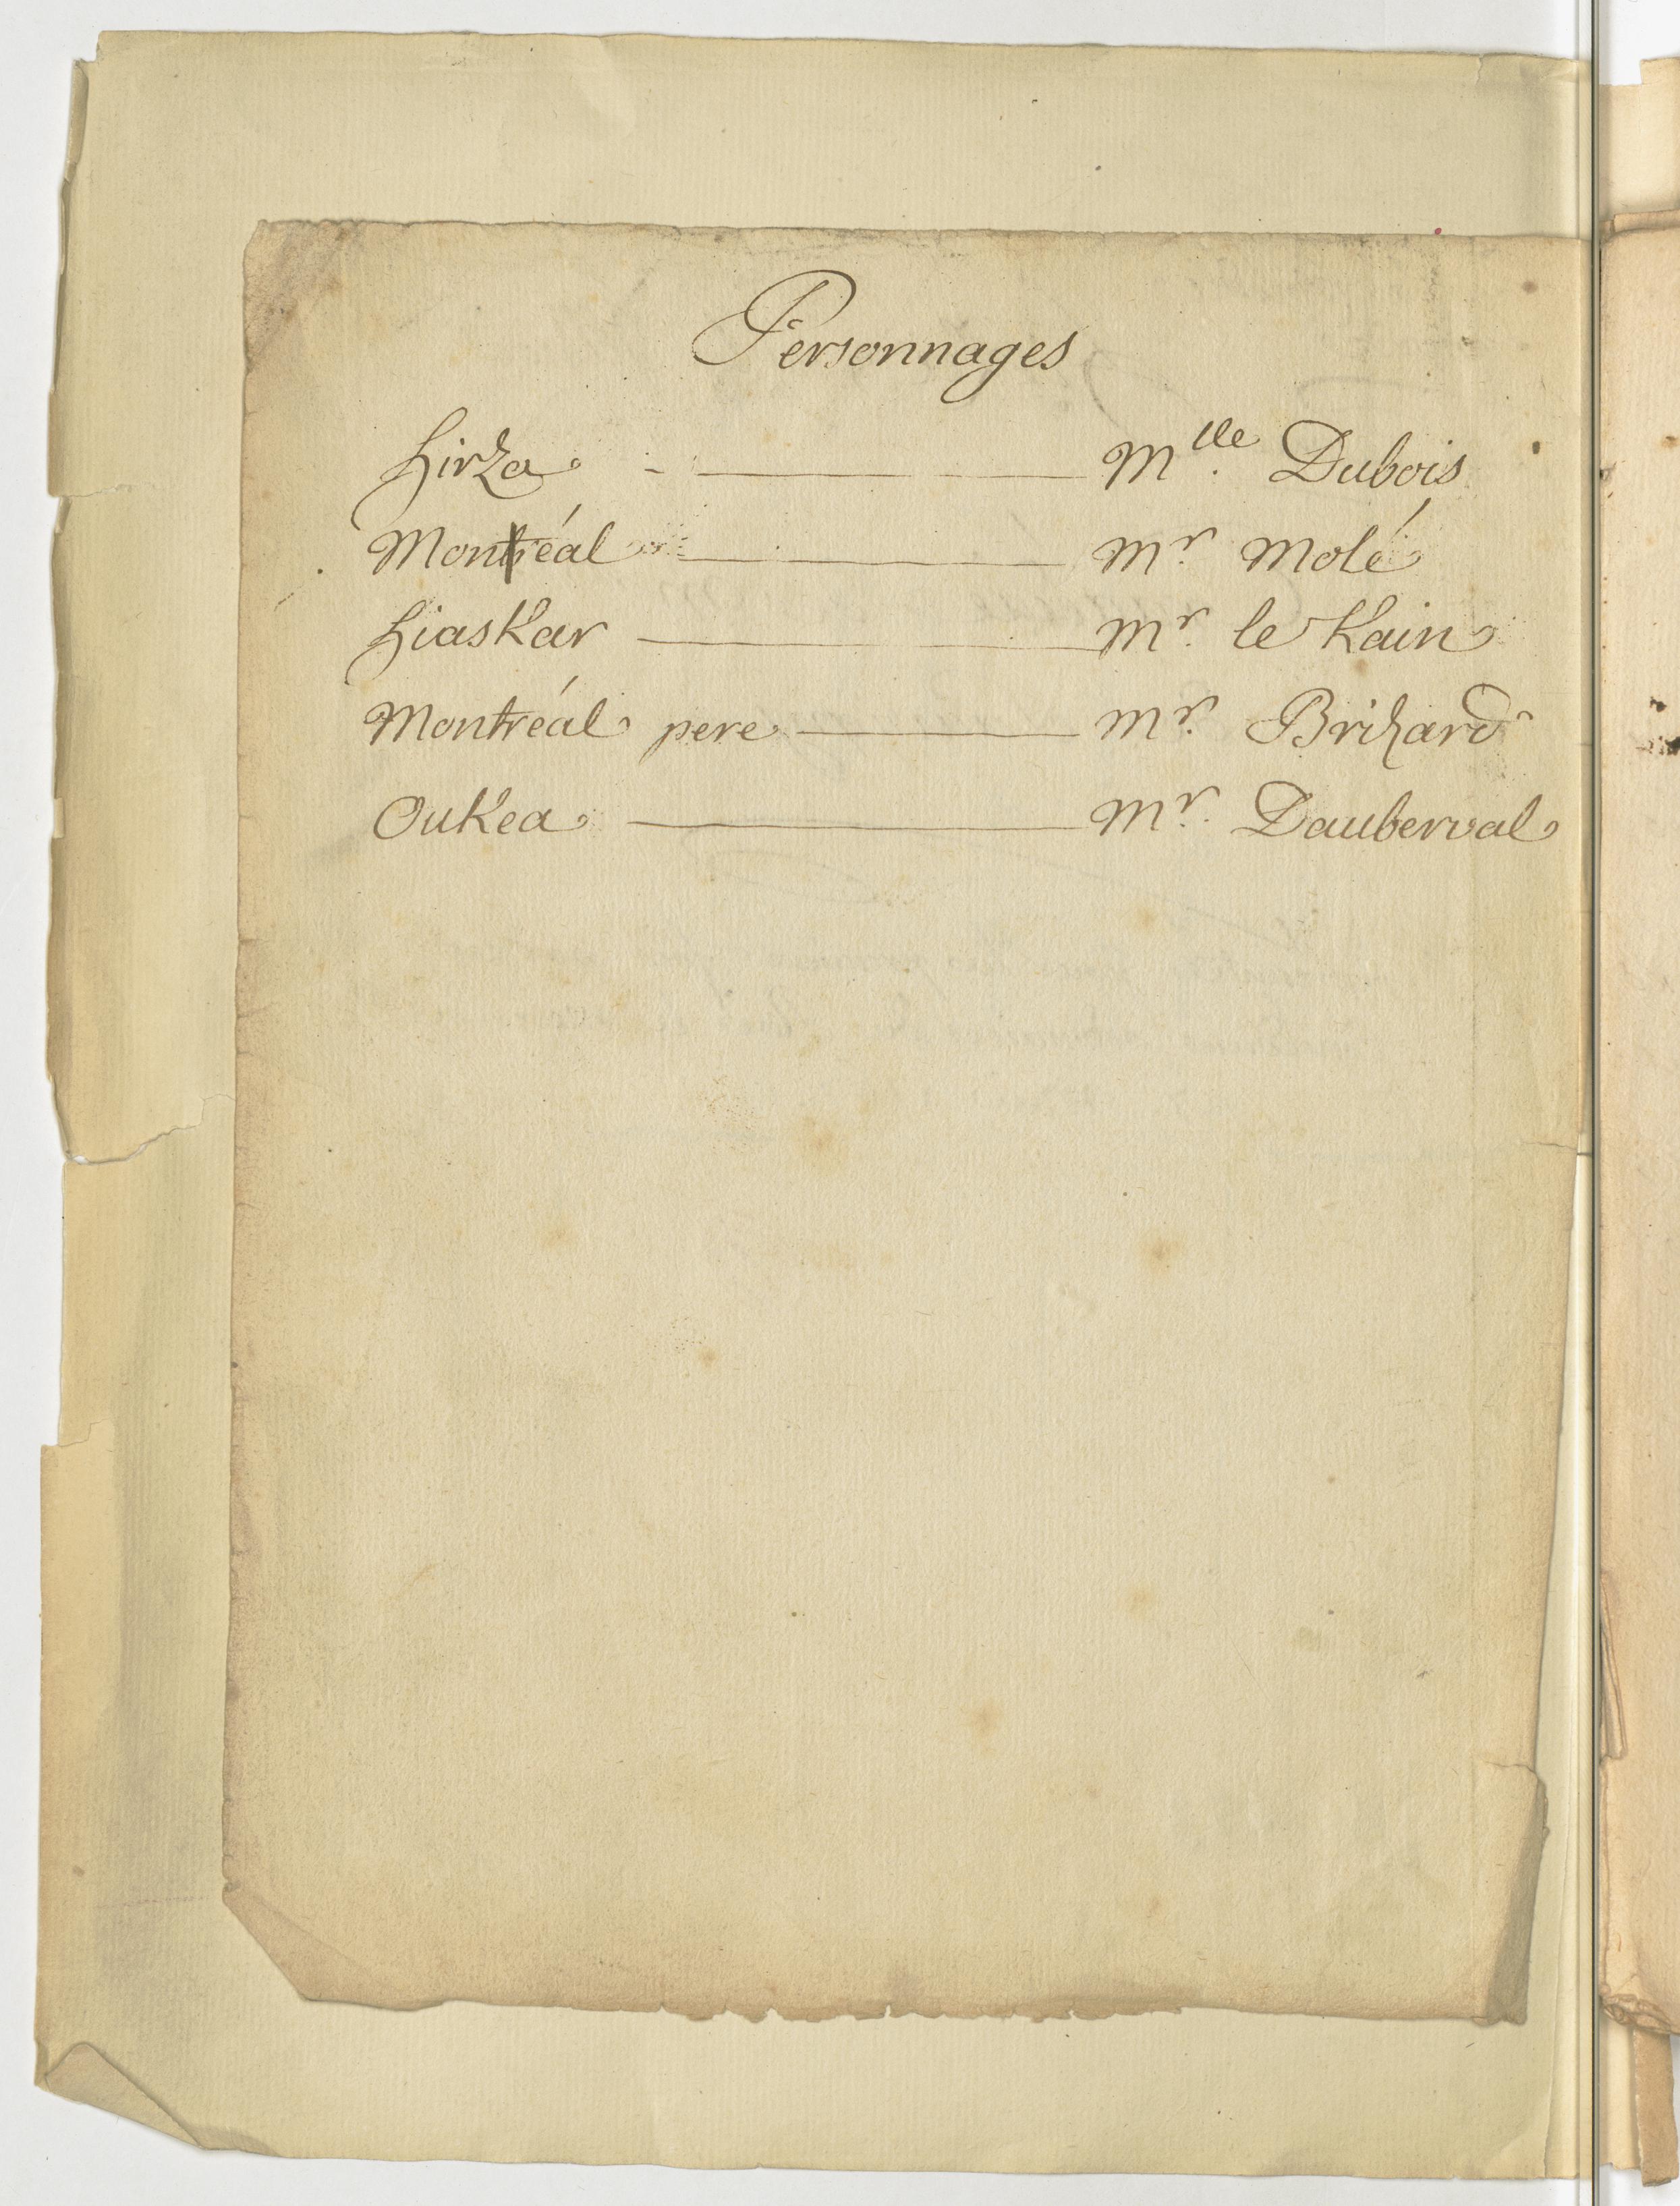 Personnages
hirza - ——— Mlle. Dubois
Montréal ——— Mr. Molé
hiaskar ——— Mr. le Kain
Montréal pere ——— Mr. Brizard
Oukea ——— Mr. Dauberval